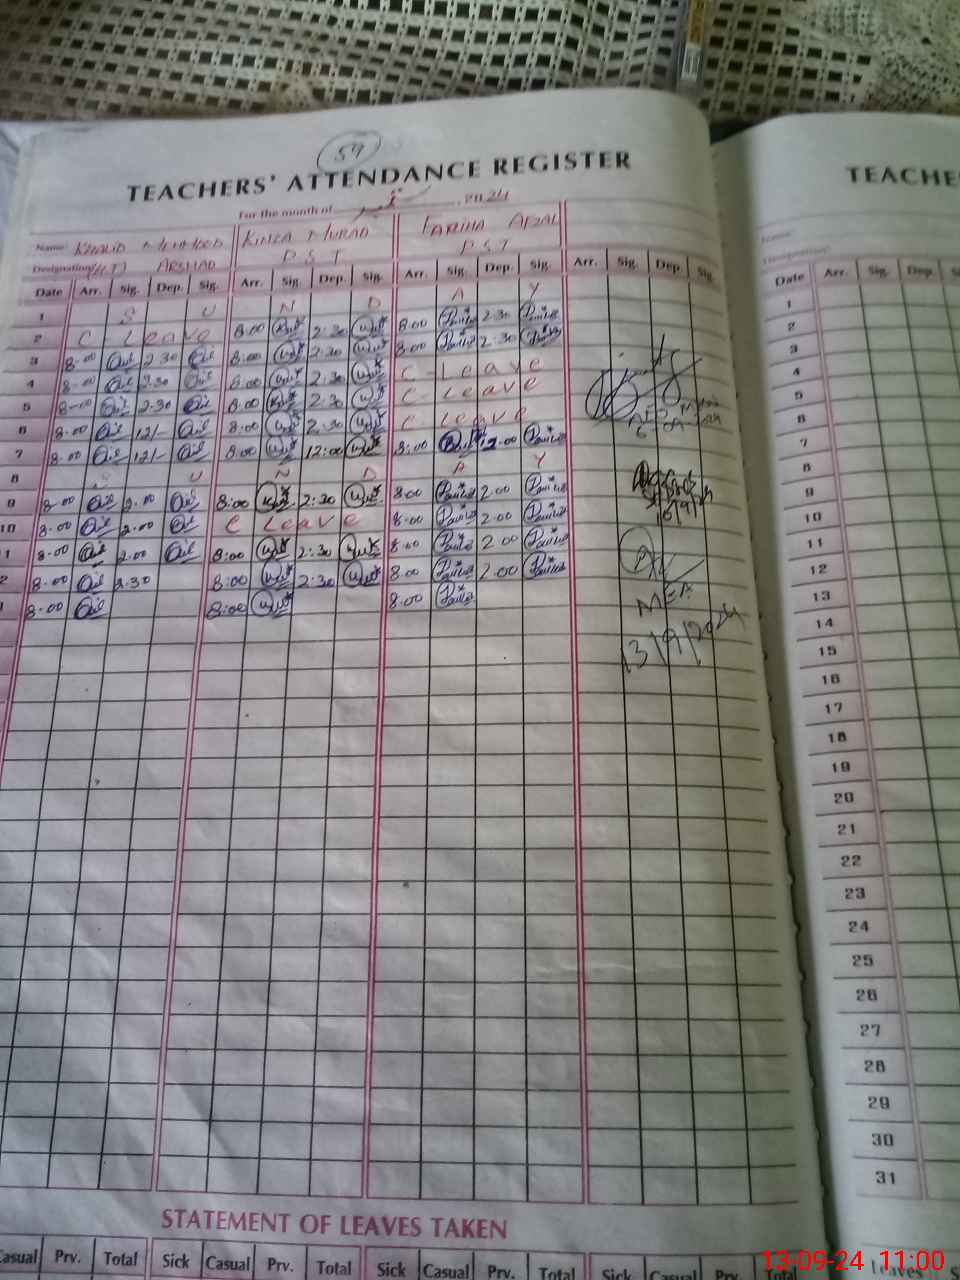 59
TEACHERS' ATTENDANCE REGISTER
For the month of ستمبر 2024
Name: KHALID MEHMOOD KINZA MURAD FARIHA AFZAL
Designation (HT) ARSHAD P.S.T P.S.T
Date Arr. Sig. Dep. Sig. Arr. Sig. Dep. Sig. Arr. Sig. Dep. Sig. Arr. Sig. Dep. Sig.
1 S U N D A Y
2 C - Leave 8:00 2:30 8:00 2:30
3 8-00 2-30 8:00 2:30 8:00 2:30
4 8-00 2-30 8:00 2:30 C - Leave
5 8-00 2-30 8:00 2:30 C - Leave
6 8-00 12/- 8:00 2:30 C Leave
7 8-00 12/- 8:00 12:00 8:00 12:00
8 S U N D A Y
9 8-00 2-00 8:00 2:30 8:00 2:00
10 8-00 2-00 C Leave 8:00 2:00
11 8-00 2-00 8:00 2:30 8:00 2:00
12 8-00 2-30 8:00 2:30 8:00 2:00
8-00 8:00 8:00
MEA
13/9/2024
STATEMENT OF LEAVES TAKEN
Casual Prv. Total Sick Casual Prv. Total Sick Casual Prv. Total Sick Casual Prv.
TEACHE
Name:
Designation:
Date Arr. Sig. Dep.
1
2
3
4
5
6
7
8
9
10
11
12
13
14
15
16
17
18
19
20
21
22
23
24
25
26
27
28
29
30
31
Leaves
13-09-24 11:00